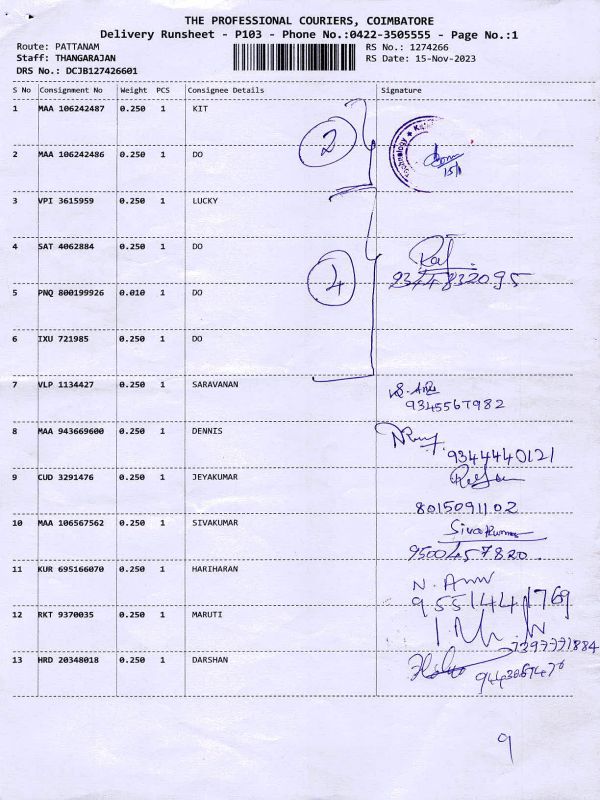 THE PROFESSIONAL COURIERS, COIMBATORE
Delivery Runsheet - P103 - Phone No.:0422-3505555 - Page No.:1
Route: PATTANAM RS No.: 1274266
Staff: THANGARAJAN RS Date: 15-Nov-2023
DRS No.: DCJB127426601
S No Consignment No Weight PCS Consignee Details Signature
1 MAA 106242487 0.250 1 KIT
2
2 MAA 106242486 0.250 1 DO
3 VPI 3615959 0.250 1 LUCKY
4 SAT 4062884 0.250 1 DO
4 9344832095
5 PNQ 800199926 0.010 1 DO
6 IXU 721985 0.250 1 DO
7 VLP 1134427 0.250 1 SARAVANAN
9345567982
8 MAA 943669600 0.250 1 DENNIS
9344440121
9 CUD 3291476 0.250 1 JEYAKUMAR
8015091102
10 MAA 106567562 0.250 1 SIVAKUMAR Sivakumar
9500457820
11 KUR 695166070 0.250 1 HARIHARAN
9551441769
12 RKT 9370035 0.250 1 MARUTI
7397771884
13 HRD 20348018 0.250 1 DARSHAN
9